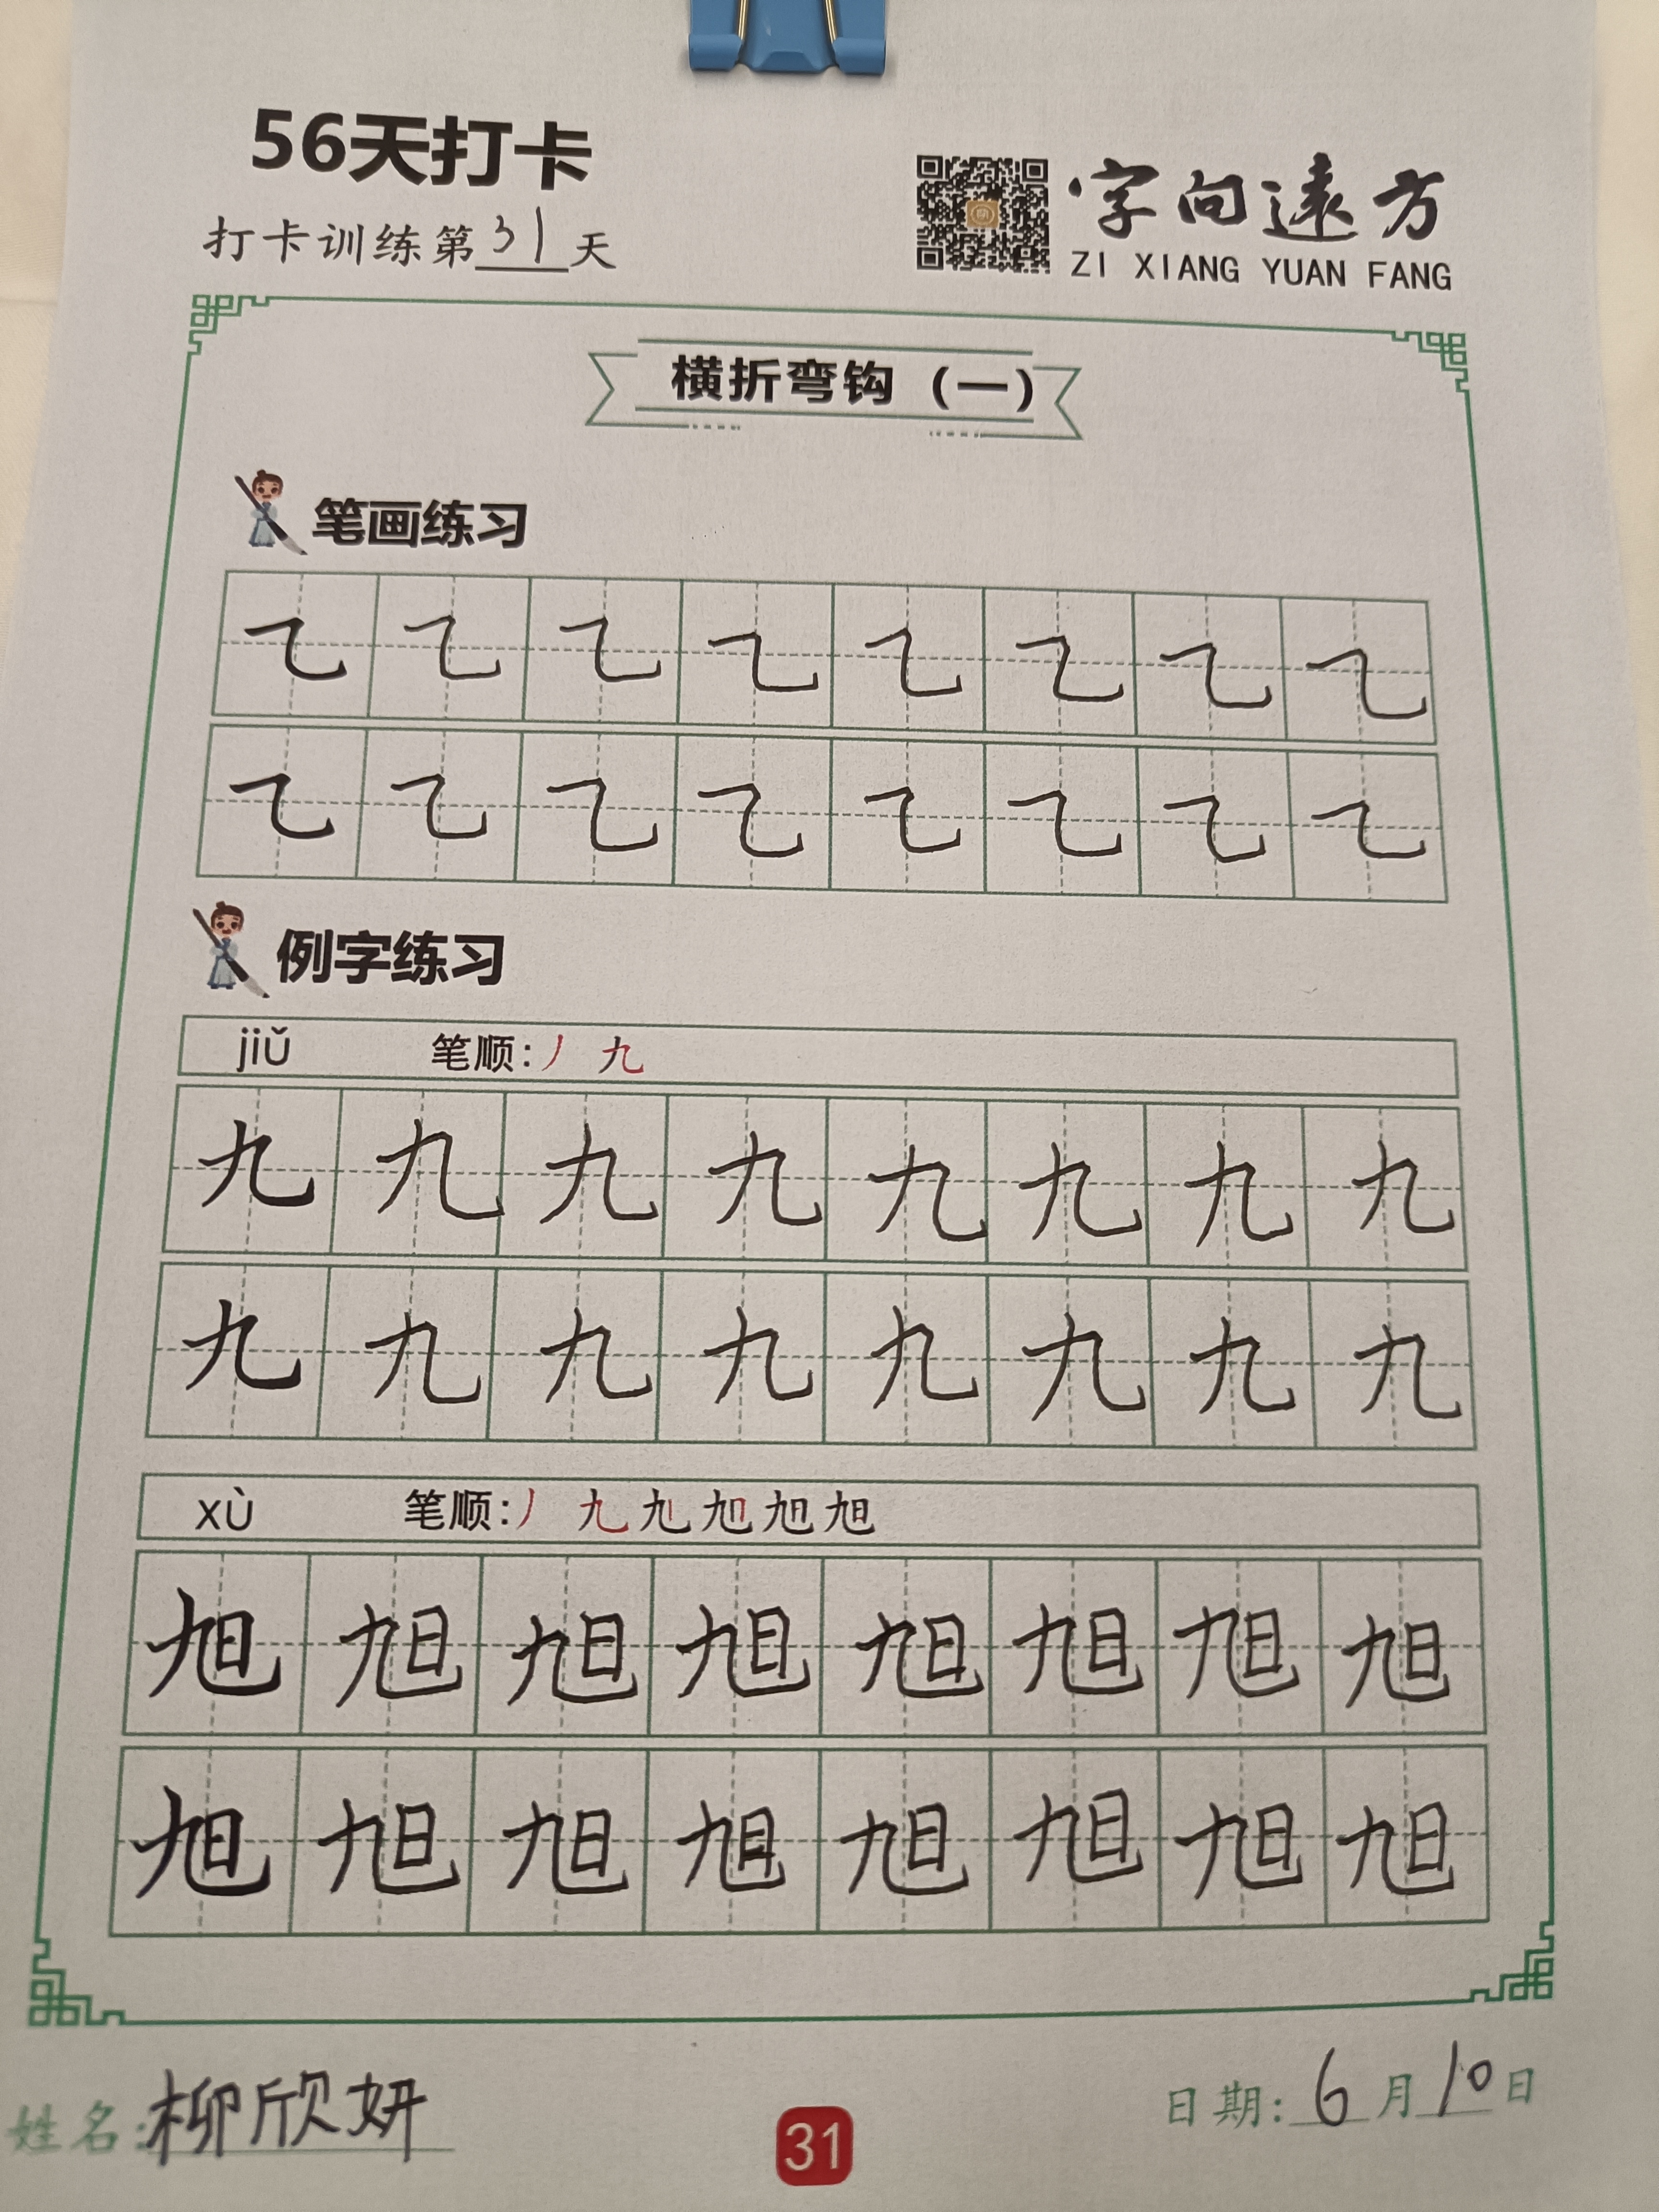 56天打卡
打卡训练第31天
字向遠方
ZI XIANG YUAN FANG
横折弯钩（一）
笔画练习
㇈ ㇈ ㇈ ㇈ ㇈ ㇈ ㇈ ㇈
㇈ ㇈ ㇈ ㇈ ㇈ ㇈ ㇈ ㇈
例字练习
jiǔ 笔顺:丿 九
九 九 九 九 九 九 九 九
九 九 九 九 九 九 九 九
xù 笔顺:丿 九 旭
旭 旭 旭 旭 旭 旭 旭 旭
旭 旭 旭 旭 旭 旭 旭 旭
姓名:柳欣妍
31
日期:6月10日